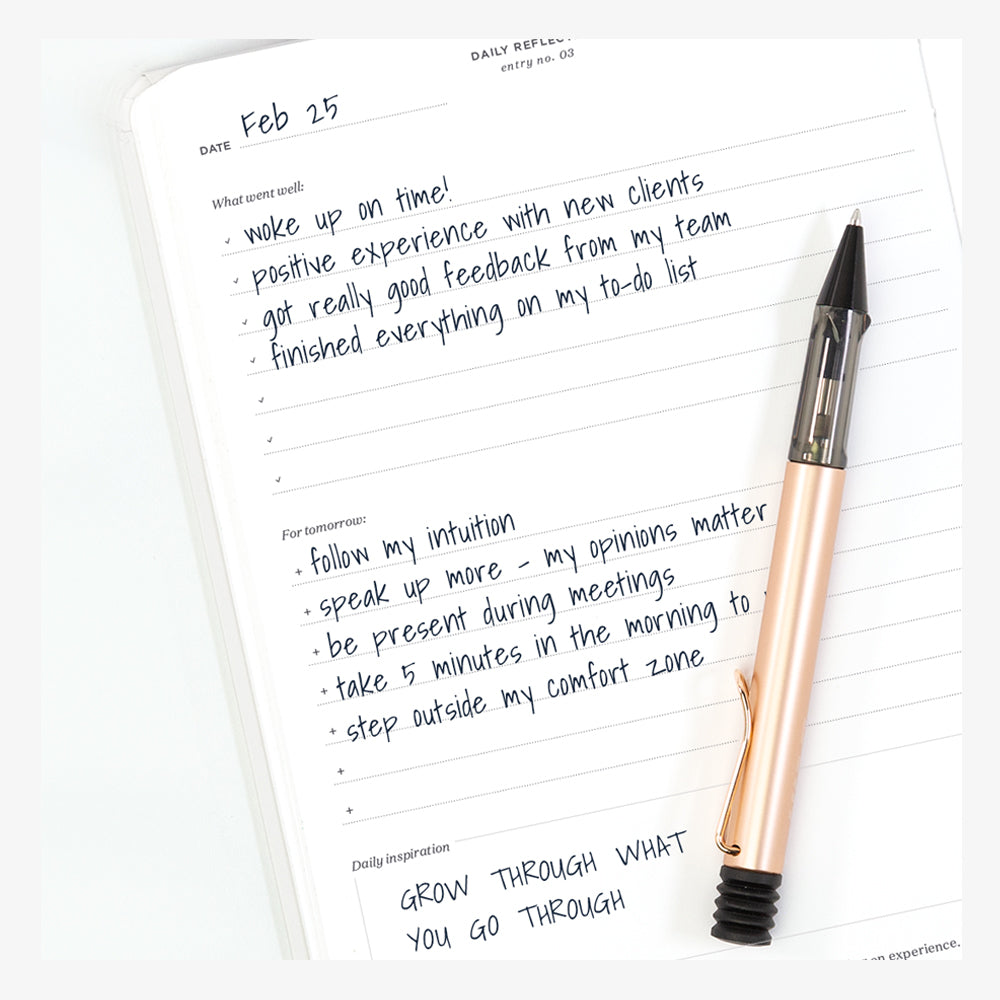 DAILY REFLECT
entry no. 03
DATE Feb 25
What went well:
✓ woke up on time!
✓ positive experience with new clients
✓ got really good feedback from my team
✓ finished everything on my to-do list
✓
✓
✓
For tomorrow:
+ follow my intuition
+ speak up more - my opinions matter
+ be present during meetings
+ take 5 minutes in the morning to
+ step outside my comfort zone
+
+
Daily inspiration
GROW THROUGH WHAT
YOU GO THROUGH
experience.